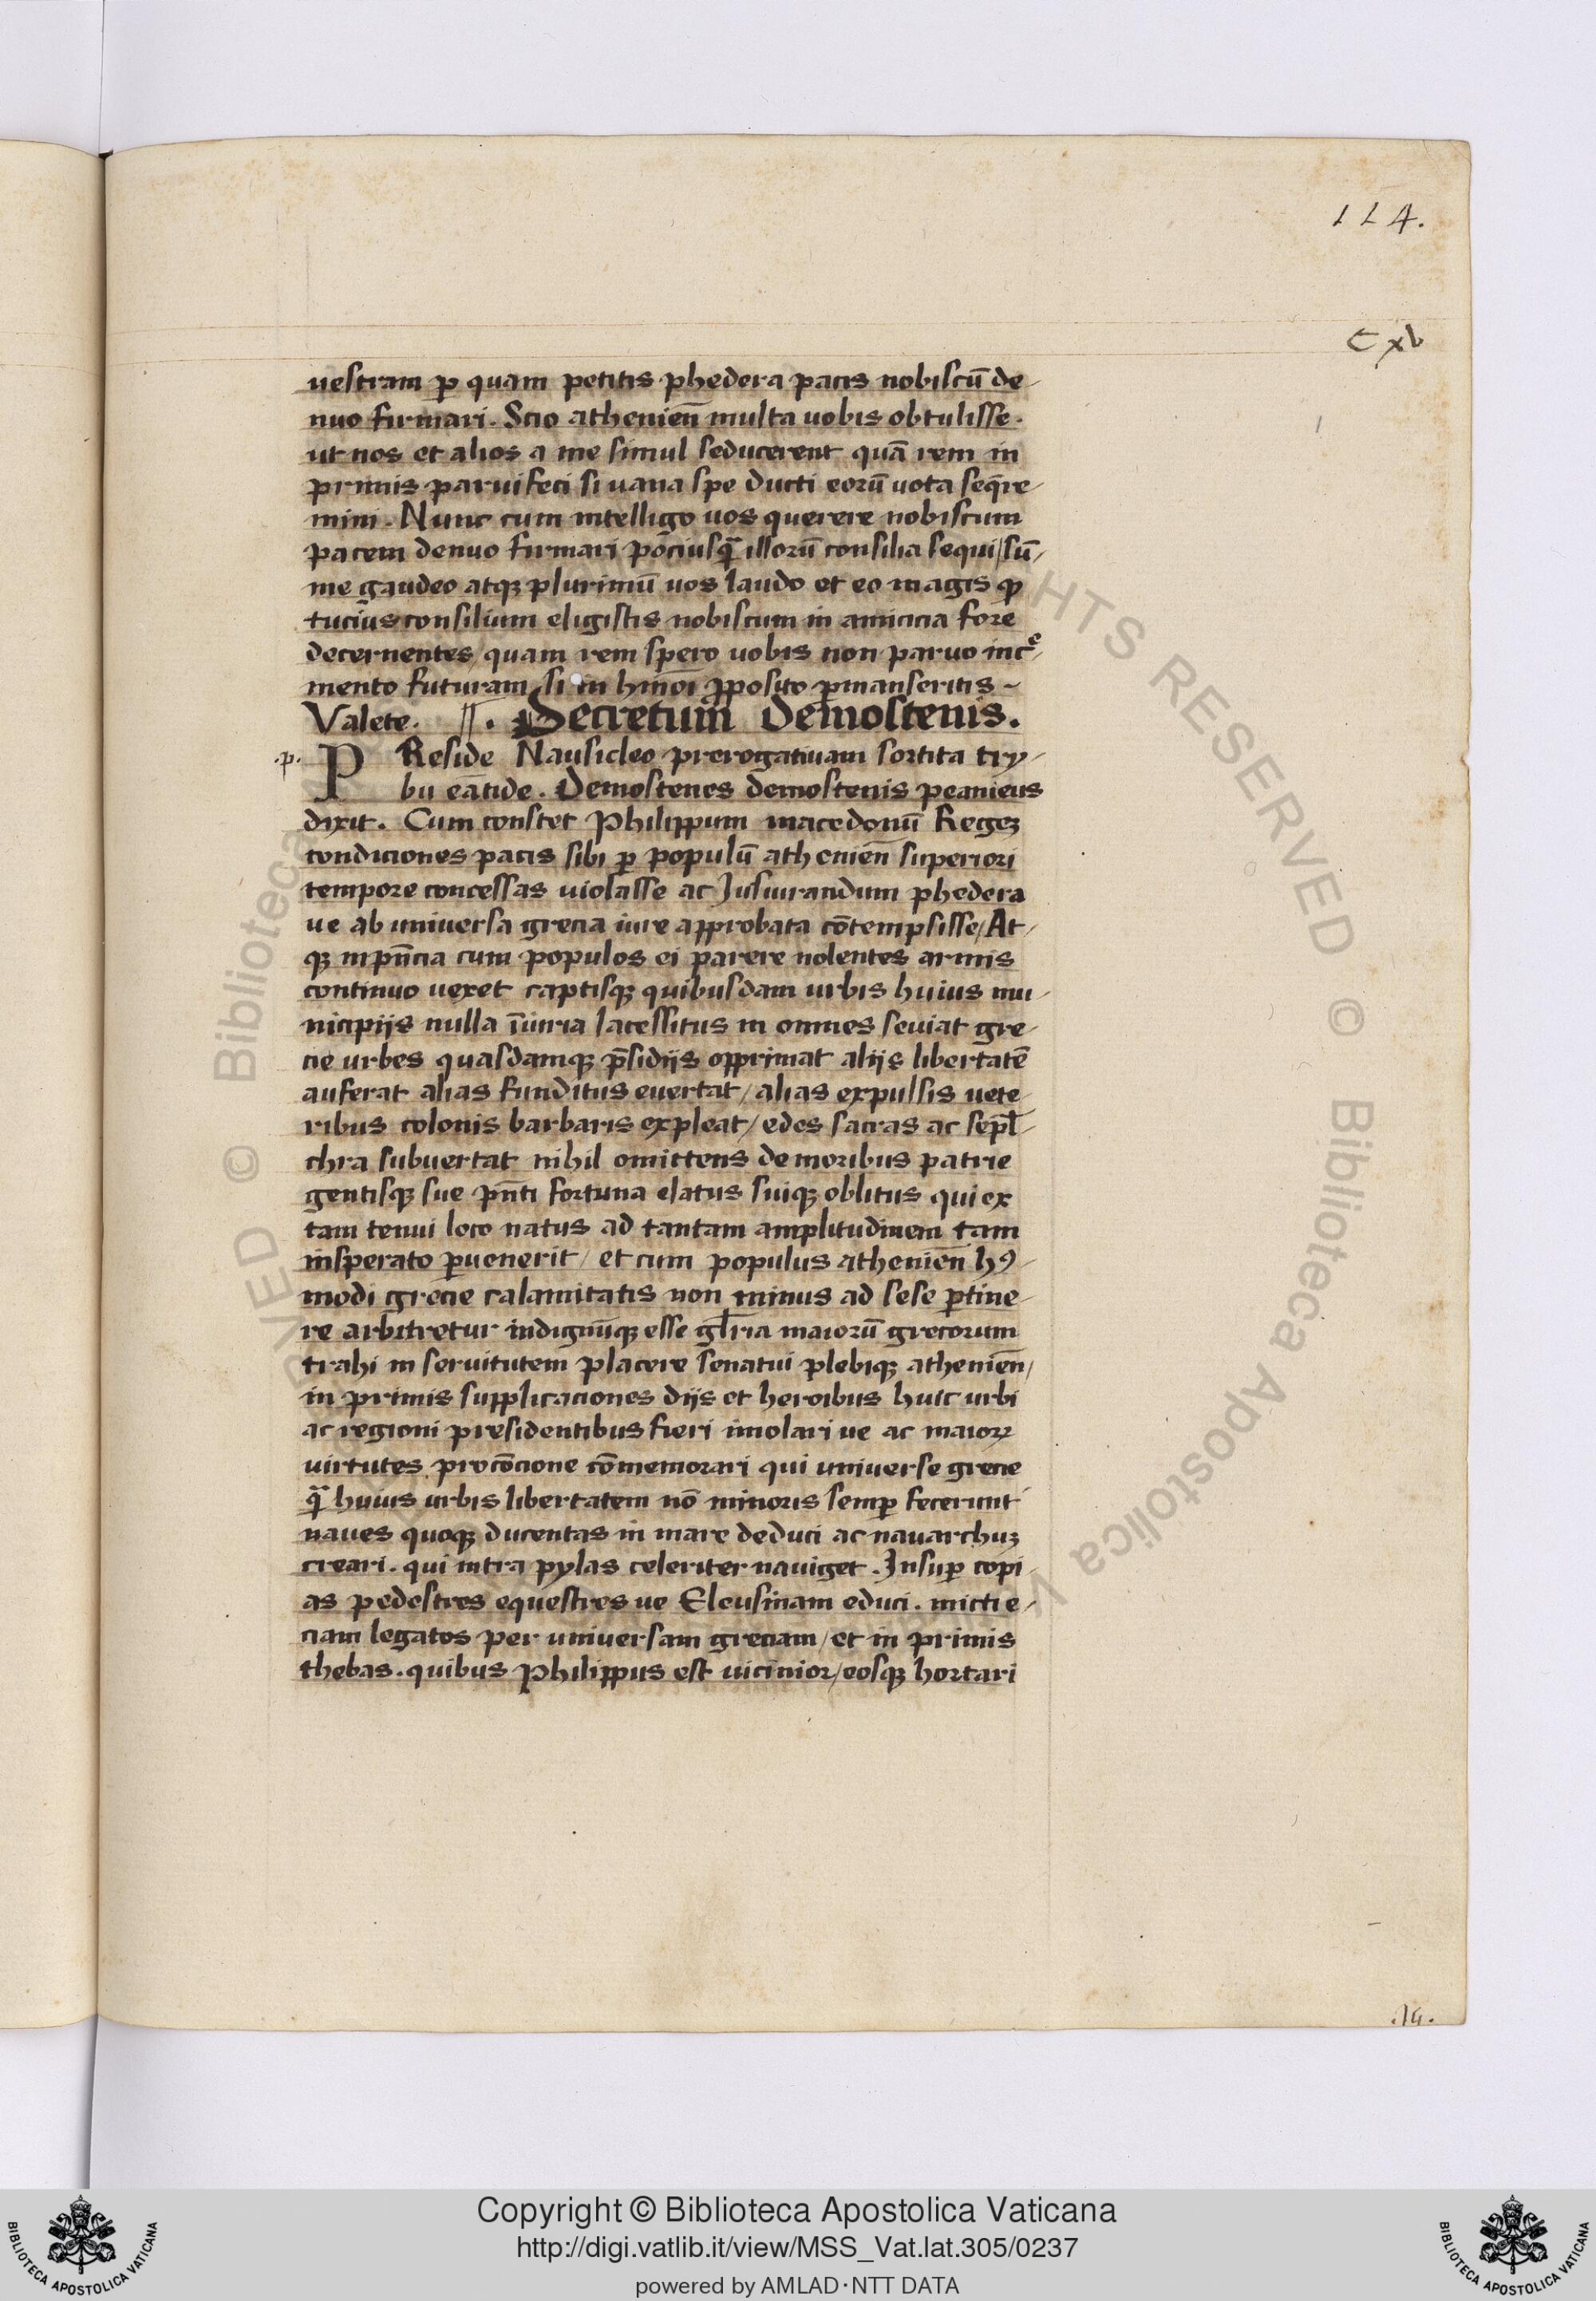 114.
Cxv
vestram ꝑ quam petitis phedera pacis nobiscū de-
nuo firmari. Scio atheniēn multa vobis obtulisse.
ut nos et alios a me simul seducerent quā rem in
primis parvifeci si vana spe ducti eorū vota seq̄re-
mini. Nunc cum intelligo vos querere nobiscum
pacem denuo firmari pōciusq̄ illorū consilia sequi/sū-
me gaudeo atqꝫ plurimū vos laudo et eo magis ꝙ
tucius consilium eligistis nobiscum in amicicia fore
decernentes/quam rem spero vobis non parvo incͤ-
mento futuram si in hmōi ꝓposito ꝑmanseritis-
Valete. Decretum Demostenis.
.p. PReside Nausicleo prerogativam sortita try-
bu eātide. Demostenes demostenis peanieus
dixit. Cum constet Philippum macedonū Regeꝫ
condiciones pacis sibi ꝑ populū atheniēn superiori
tempore concessas violasse ac Jusiurandum phedera
ve ab universa grecia iure approbata cōtempsisse/At-
qꝫ inpn̄cia cum populos ei parere nolentes armis
continuo vexet captisqꝫ quibusdam urbis huius mu-
nicipijs nulla īiuria lacessitus in omnes seviat gre-
cie urbes quasdamqꝫ p̄sidijs opprimat alijs libertatē
auferat alias funditus evertat/alias expulsis vete-
ribus colonis barbaris expleat/edes sacras ac sepl̄-
chra subvertat nihil omittens de moribus patrie
gentisqꝫ sue pn̄ti fortuna elatus suiqꝫ oblitus qui ex
tam tenui loco natus ad tantam amplitudinem tam
insperato ꝑvenerit/et cum populus atheniēn hꝰ-
modi grecie calamitatis non minus ad sese ꝑtine-
re arbitretur indignūqꝫ esse gl̄ria maiorū grecorum
trahi in servitutem placere senatui plebiqꝫ atheniēn/
in primis supplicaciones dijs et heroibus huic urbi
ac regioni presidentibus fieri imolari ve ac maioꝝ
virtutes pro cōcione cōmemorari qui universe grecie
q̄ huius urbis libertatem nō minoris semꝑ fecerunt
naves quoqꝫ ducentas in mare deduci ac navarchuꝫ
creari. qui intra pylas celeriter naviget. Insuꝑ copi-
as pedestres equestres ve Eleusinam educi. micti e-
ciam legatos per universam greciam/et in primis
thebas. quibus Philippus est vicinior/eosqꝫ hortari
.14.
Copyright © Biblioteca Apostolica Vaticana
http://digi.vatlib.it/view/MSS_Vat.lat.305/0237
powered by AMLAD·NTT DATA